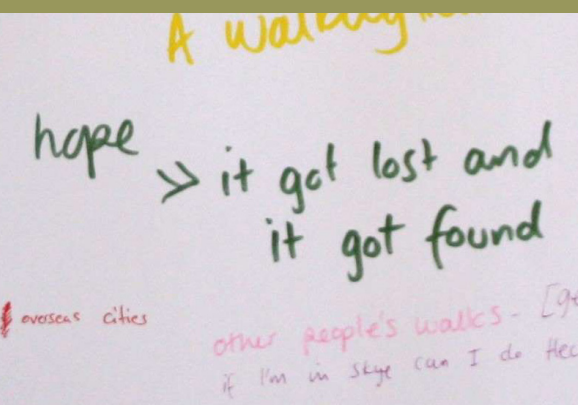 A walking
hope
>> it got lost and
it got found
overseas cities
other people's walks - [
if I'm in Skye can I do